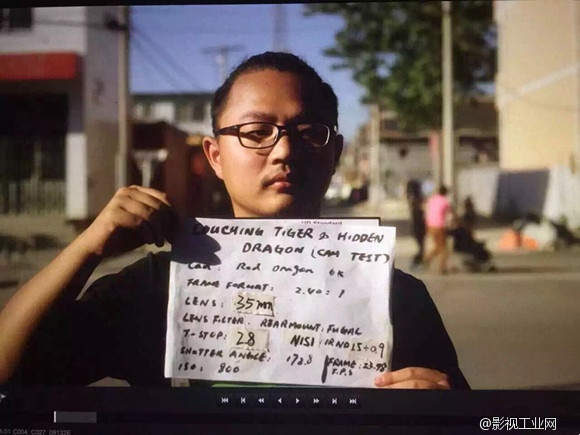 COUCHING TIGER & HIDDEN
DRAGON (CAM TEST)
CAM: Red Dragon 6K
FRAME FORMAT: 2.40:1
LENS: 35mm
LENS FILTER: REARMOUNT: FUGAL
T-STOP: 28 NISI: IRND 15+0.9
SHUTTER ANGLE: 172.8 FRAME: 23.98
ISO: 800 T.P.S
@影视工业网